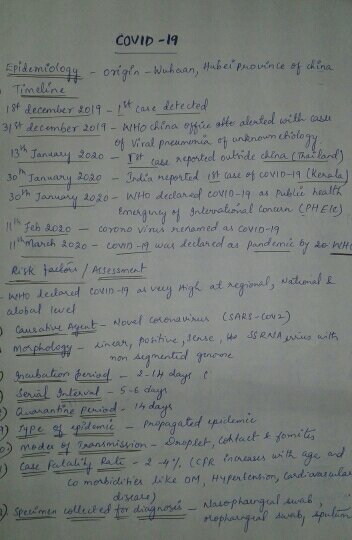 COVID-19
Epidemiology - Origin - Wuhaan, Hubei Province of china
Timeline
1st december 2019 - 1st case detected
31st december 2019 - WHO china office alerted with cases
of Viral pneumonia of unknown etiology
13th January 2020 - 1st case reported outside china (Thailand)
30th January 2020 - India reported 1st case of COVID-19 (Kerala)
30th January 2020 - WHO declared COVID-19 as Public health
Emergency of International Concern (PHEIC)
11th Feb 2020 - corona virus renamed as COVID-19
11th March 2020 - COVID-19 was declared as Pandemic by WHO
Risk factors / Assessment
- WHO declared COVID-19 as very High at regional, National &
Global level
Causative Agent - Novel coronavirus (SARS-COV2)
Morphology - Linear, Positive, Sense, SSRNA virus with
non segmented genome
Incubation period - 2-14 days
Serial Interval - 5-6 days
Quarantine Period - 14 days
Type of epidemic - Propagated epidemic
Modes of Transmission - Droplet, contact & fomites
Case Fatality Rate - 2-4% (CFR increases with age and
Co morbidities like DM, Hypertension, Cardiovascular
disease)
Specimen collected for diagnosis - Nasopharyngeal swab
swab, sputum